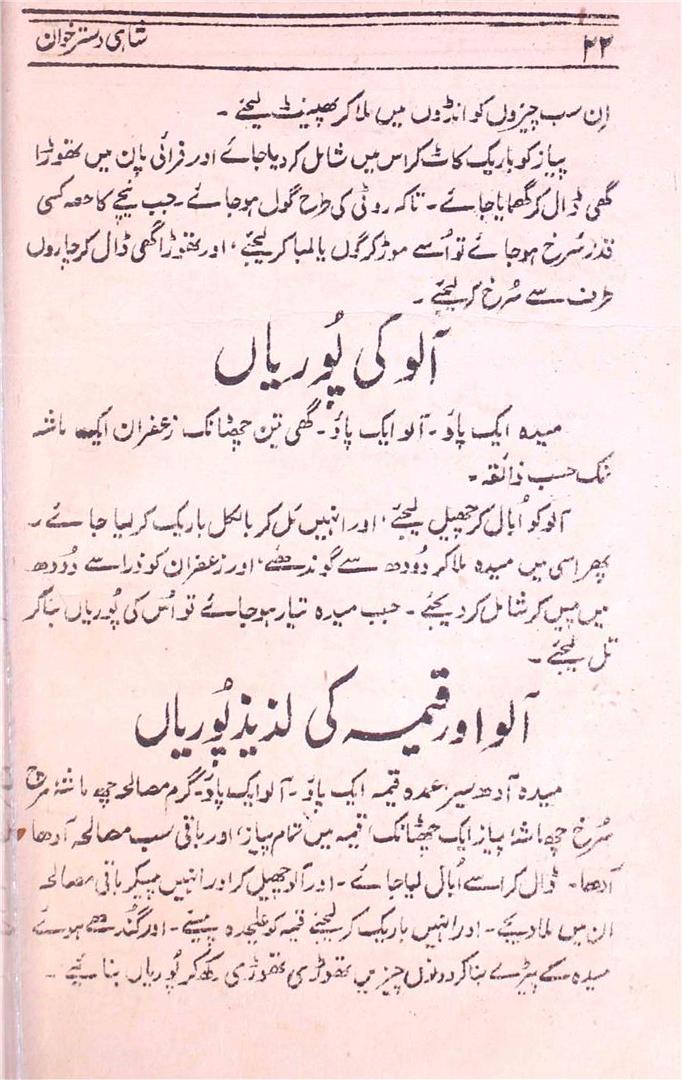 ۲۲ شاہی دسترخوان
اِن سب چیزوں کو انڈوں میں ملا کر پھینٹ لیجئے ۔
پیاز کو باریک کاٹ کر اس میں شامل کر دیا جائے اور فرائی پان میں تھوڑا
گھی ڈال کر گھمایا جائے ۔ تاکہ روٹی کی طرح گول ہو جائے ۔ جب نیچے کا حصہ کسی
قدر سُرخ ہو جائے تو اُسے موڑ کر گول یا لمبا کر لیجئے ، اور تھوڑا گھی ڈال کر چاروں
طرف سے سُرخ کر لیجئے ۔
آلو کی پُوریاں
میدہ ایک پاؤ ۔ آلو ایک پاؤ ۔ گھی تین چھٹانک زعفران ایک ماشہ
نمک حسب ذائقہ ۔
آلو کو اُبال کر چھیل لیجئے ، اور انہیں مَل کر بالکل باریک کر لیا جائے ۔
پھر اسی میں میدہ ملا کر دُودھ سے گوندھئے ، اور زعفران کو ذرا سے دُودھ
میں پیس کر شامل کر دیجئے ۔ جب میدہ تیار ہو جائے تو اُس کی پُوریاں بنا کر
تل لیجئے ۔
آلو اور قیمہ کی لذیذ پُوریاں
میدہ آدھ سیر ، عمدہ قیمہ ایک پاؤ ۔ آلو ایک پاؤ ۔ گرم مصالحہ چھ ماشہ ، مرچ
سُرخ چھ ماشہ ، پیاز ایک چھٹانک ، قیمہ میں تمام پیاز ، اور باقی سب مصالحہ آدھا
آدھا ۔ ڈال کر اسے اُبال لیا جائے ۔ اور آلو چھیل کر اور انہیں پیسکر باقی مصالحہ
ان میں ملا دیجئے ۔ اور انہیں باریک کر لیجئے قیمہ کو علیحدہ پیسئے ۔ اور گُندھے ہوئے
میدہ کے پیڑے بنا کر دونوں چیزیں تھوڑی تھوڑی رکھ کر پُوریاں بنائیے ۔